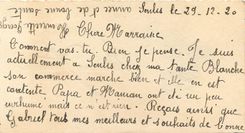 Senlis le 29-12-20
Chère Marraine
Comment vas-tu Bien je pense. Je suis
actuellement à Senlis chez ma tante Blanche
son commerce marche bien et elle en est
contente Papa et Maman ont eu un peu
rhume mais ce n'est rien. Reçois ainsi que
Gabriel tous mes meilleurs et souhaits de bonne
année et de bonne santé